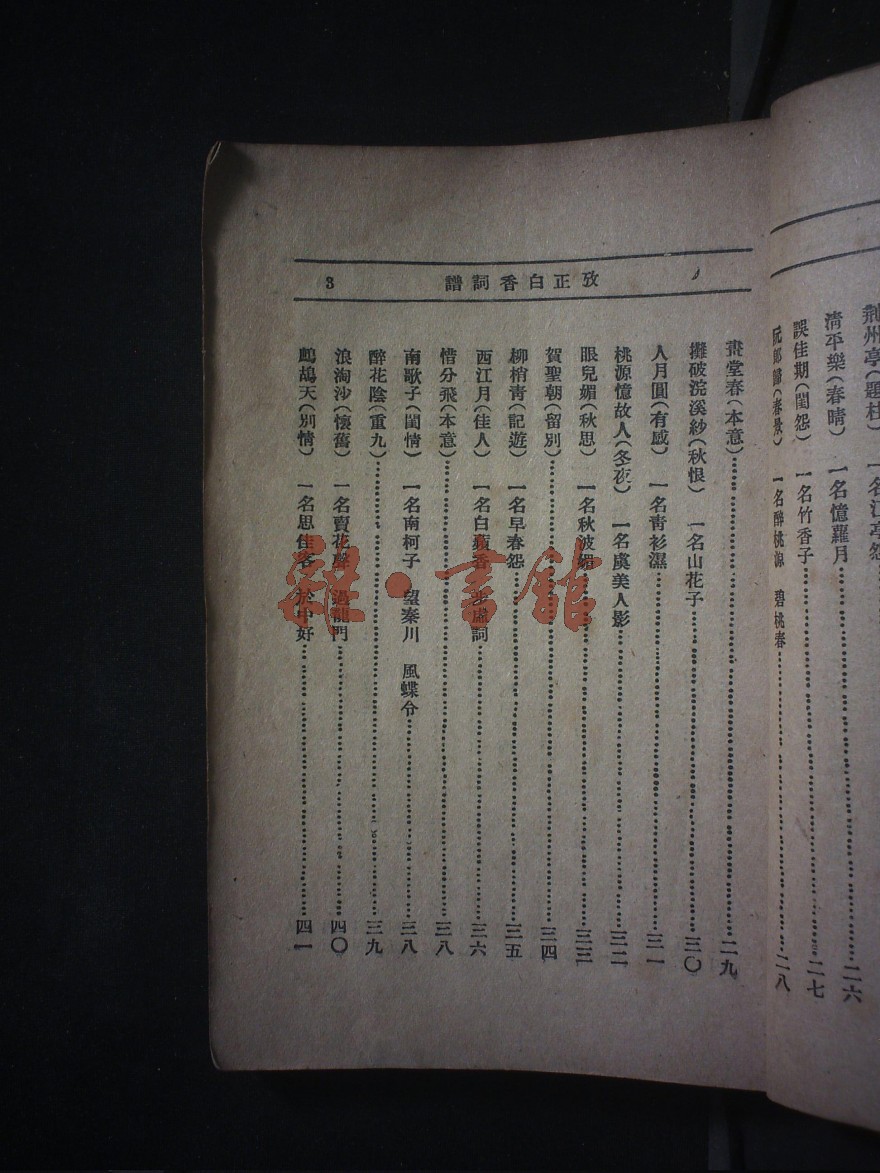 荊州亭(題柱) 一名江亭怨
清平樂(春晴) 一名憶蘿月……二六
誤佳期(閨怨) 一名竹香子……二七
阮郎歸(春景) 一名醉桃源 碧桃春……二八
攷正白香詞譜 3
畫堂春(本意)……二九
攤破浣溪紗(秋恨) 一名山花子……三〇
人月圓(有感) 一名青衫濕……三一
桃源憶故人(冬夜) 一名虞美人影……三二
眼兒媚(秋思) 一名秋波媚……三三
賀聖朝(留別)……三四
柳梢青(記遊) 一名早春怨……三五
西江月(佳人) 一名白蘋香 步虛詞……三六
惜分飛(本意)……三八
南歌子(閨情) 一名南柯子 望秦川 風蝶令……三八
醉花陰(重九)……三九
浪淘沙(懷舊) 一名賣花聲 過龍門……四〇
鷓鴣天(別情) 一名思佳客 於中好……四一
雜·書館